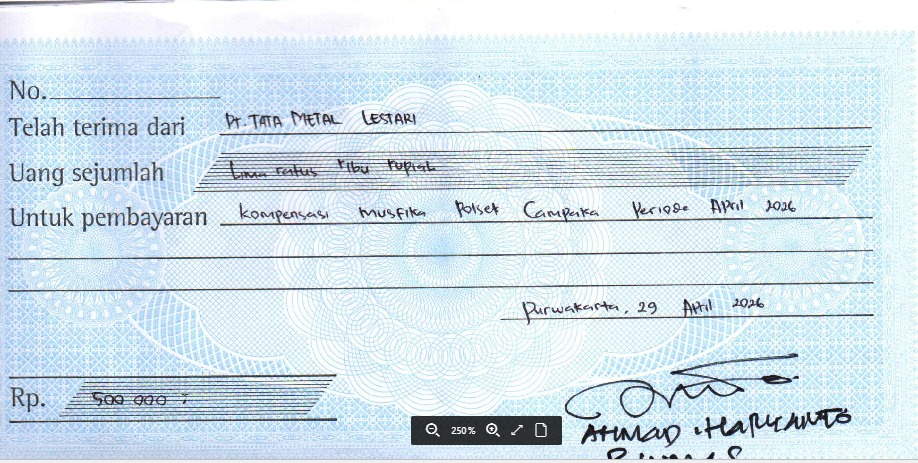 No.
Telah terima dari PT. TATA METAL LESTARI
Uang sejumlah Lima ratus ribu rupiah
Untuk pembayaran kompensasi musfika Polsek Campaka Periode April 2026
Purwakarta, 29 April 2026
Rp. 500 000
250%
AHMAD HARYANTO